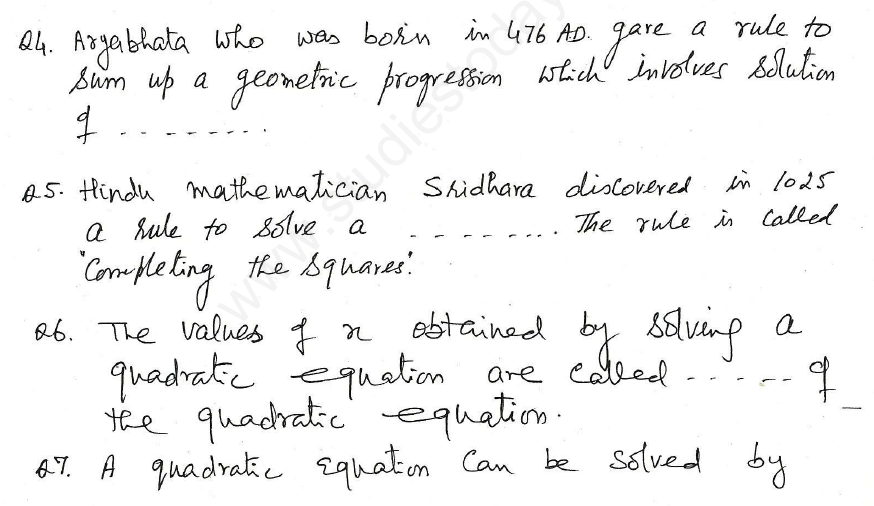 Q4. Aryabhata who was born in 476 AD. gave a rule to
sum up a geometric progression which involves solution
of .........
Q5. Hindu mathematician Sridhara discovered in 1025
a rule to solve a ......... The rule is called
'Completing the squares'.
Q6. The values of x obtained by solving a
quadratic equation are called ..... of
the quadratic equation.
Q7. A quadratic equation can be solved by
www.studiestoday